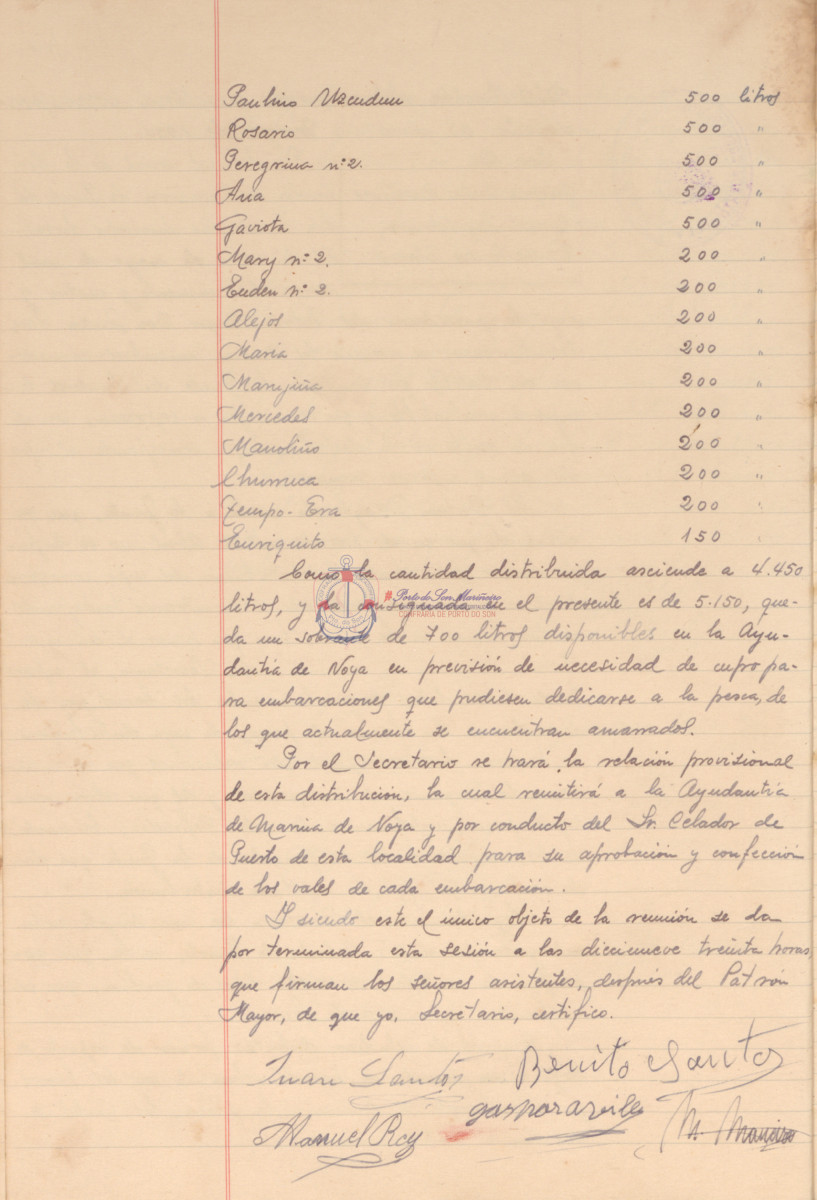 Paulino Uzcudun 500 litros
Rosario 500 "
Peregrina nº 2. 500 "
Ana 500 "
Gaviota 500 "
Mary nº 2. 200 "
Euden nº 2. 200 "
Alejos 200 "
María 200 "
Marujiña 200 "
Mercedes 200 "
Manoliño 200 "
Churruca 200 "
Tempo-Era 200 "
Enriquito 150 "
Como la cantidad distribuida asciende a 4.450
litros, y la consignada en el presente es de 5.150, que-
da un sobrante de 700 litros disponibles en la Ayu-
dantía de Noya en previsión de necesidad de cupo pa-
ra embarcaciones que pudiesen dedicarse a la pesca, de
los que actualmente se encuentran amarrados.
Por el Secretario se hará la relación provisional
de esta distribución, la cual remitirá a la Ayudantía
de Marina de Noya y por conducto del Sr. Celador de
Puerto de esta localidad para su aprobación y confección
de los vales de cada embarcación.
Y siendo este el único objeto de la reunión se da
por terminada esta sesión a las diecinueve treinta horas,
que firman los señores asistentes, después del Patrón
Mayor, de que yo, Secretario, certifico.
Juan Santos Benito Santos
Manuel Rey gaspar avila M.
Porto do Son Mariñeiro
CONFRARÍA DE PORTO DO SON